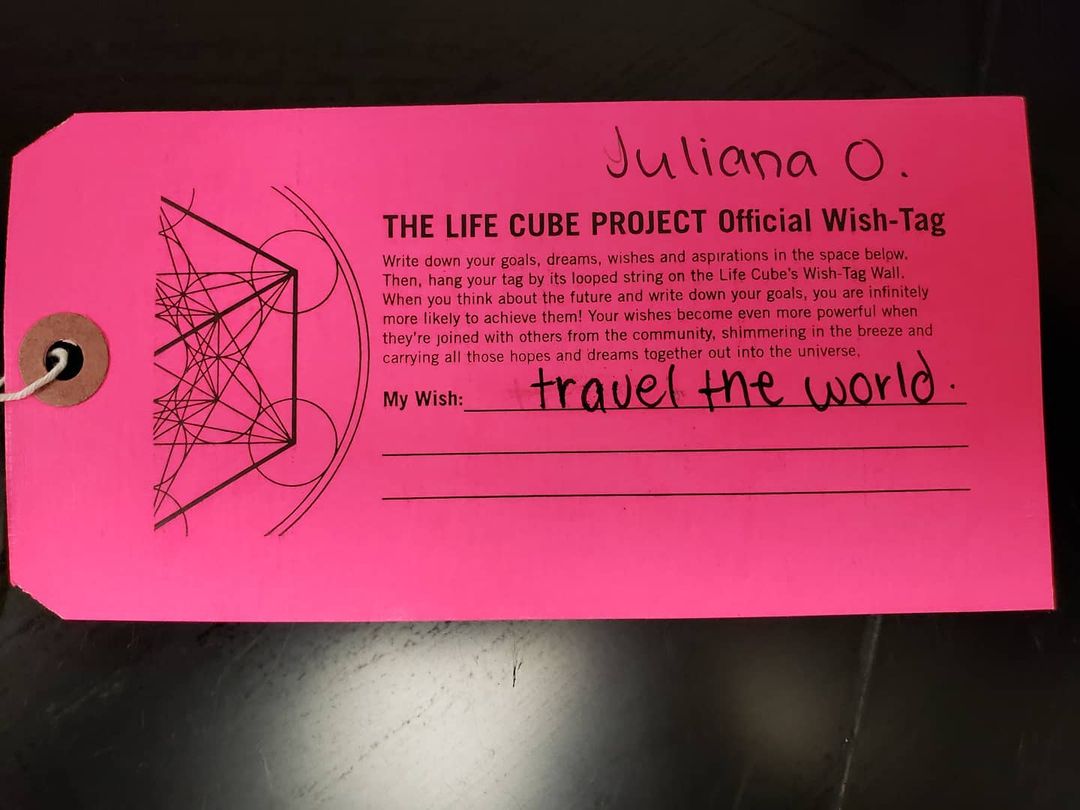 Juliana O.
THE LIFE CUBE PROJECT Official Wish-Tag
Write down your goals, dreams, wishes and aspirations in the space below.
Then, hang your tag by its looped string on the Life Cube's Wish-Tag Wall.
When you think about the future and write down your goals, you are infinitely
more likely to achieve them! Your wishes become even more powerful when
they're joined with others from the community, shimmering in the breeze and
carrying all those hopes and dreams together out into the universe.
My Wish: travel the world.